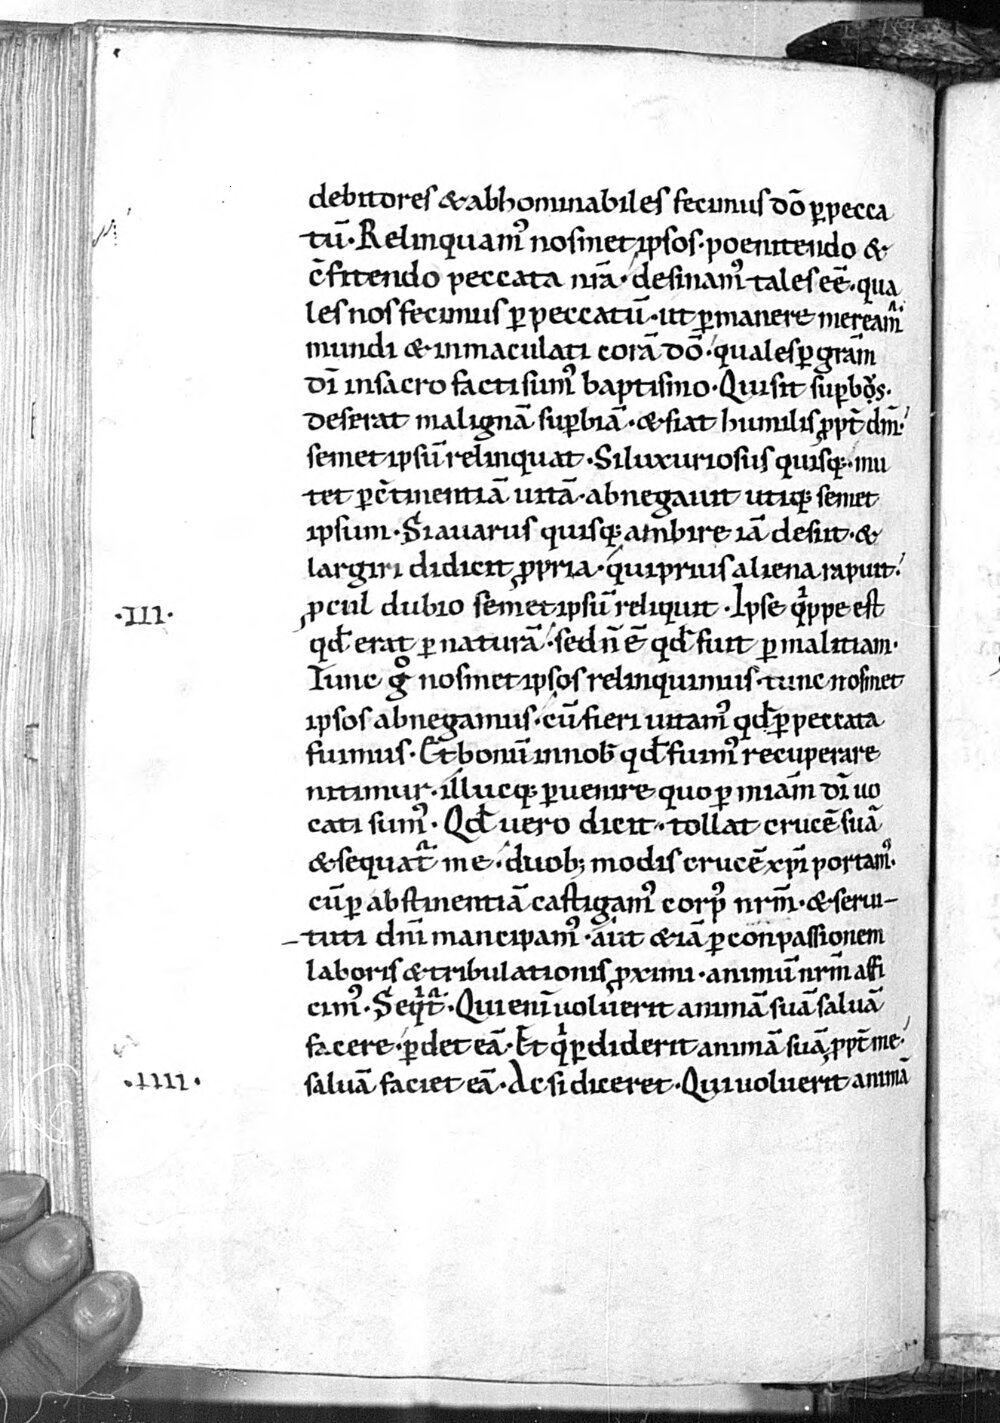 debitores & abhominabiles fecimus dō ꝑ pecca
tū· Relinquamꝰ nosmet ipsos· poenitendo &
c̄fitendo peccata nr̄a· desinamꝰ tales eē· qua
les nos fecimus ꝑ peccatū· ut ꝑmanere mereamꝰ
mundi & inmaculati corā dō· quales ꝑ gr̄am
dī in sacro facti sumꝰ baptismo· Qui sit suꝑbꝰ
deserat malignā suꝑbiā· & fiat humilis ꝓpt̄ dm̄·
semet ipsū relinquat· Si luxuriosus quisq;· mu
tet ꝑ c̄tinentiā uitā· abnegauit utiq; semet
ipsum· Si auarus quisq; ambire iā desiit· &
largiri didicit ꝓpria· qui prius aliena rapuit·
ꝓcul dubio semet ipsū reliquit· Ipse qͥppe est
·III·
qd̄ erat ꝑ naturā· sed n̄ ē qd̄ fuit ꝑ malitiam·
Tunc gͦ nosmet ipsos relinquimus· tunc nosmet
ipsos abnegamus· cū fieri uitamꝰ qd̄ ꝑ peccata
fuimus· Et bonū in nob̄ qd̄ fuimꝰ recuperare
nitimur· illucq; ꝑuenire quo ꝑ miam̄ dī uo
cati sumꝰ· Qd̄ uero dicit· tollat crucē suā
& sequat̄ me· duob; modis crucē xp̄i portamꝰ·
cū ꝑ abstinentiā castigamꝰ corpꝰ nrm̄· & serui-
tuti dn̄i mancipamꝰ· aut & iā ꝑ conpassionem
laboris & tribulationis ꝓximi· animū nrm̄ affi
cimꝰ· Seqͥt̄· Qui enī uoluerit animā suā saluā
facere· ꝑdet eā· Et qͥ ꝑdiderit animā suā ꝓpt̄ me·
saluā faciet eā· Ac si diceret· Qui uoluerit animā
·IIII·